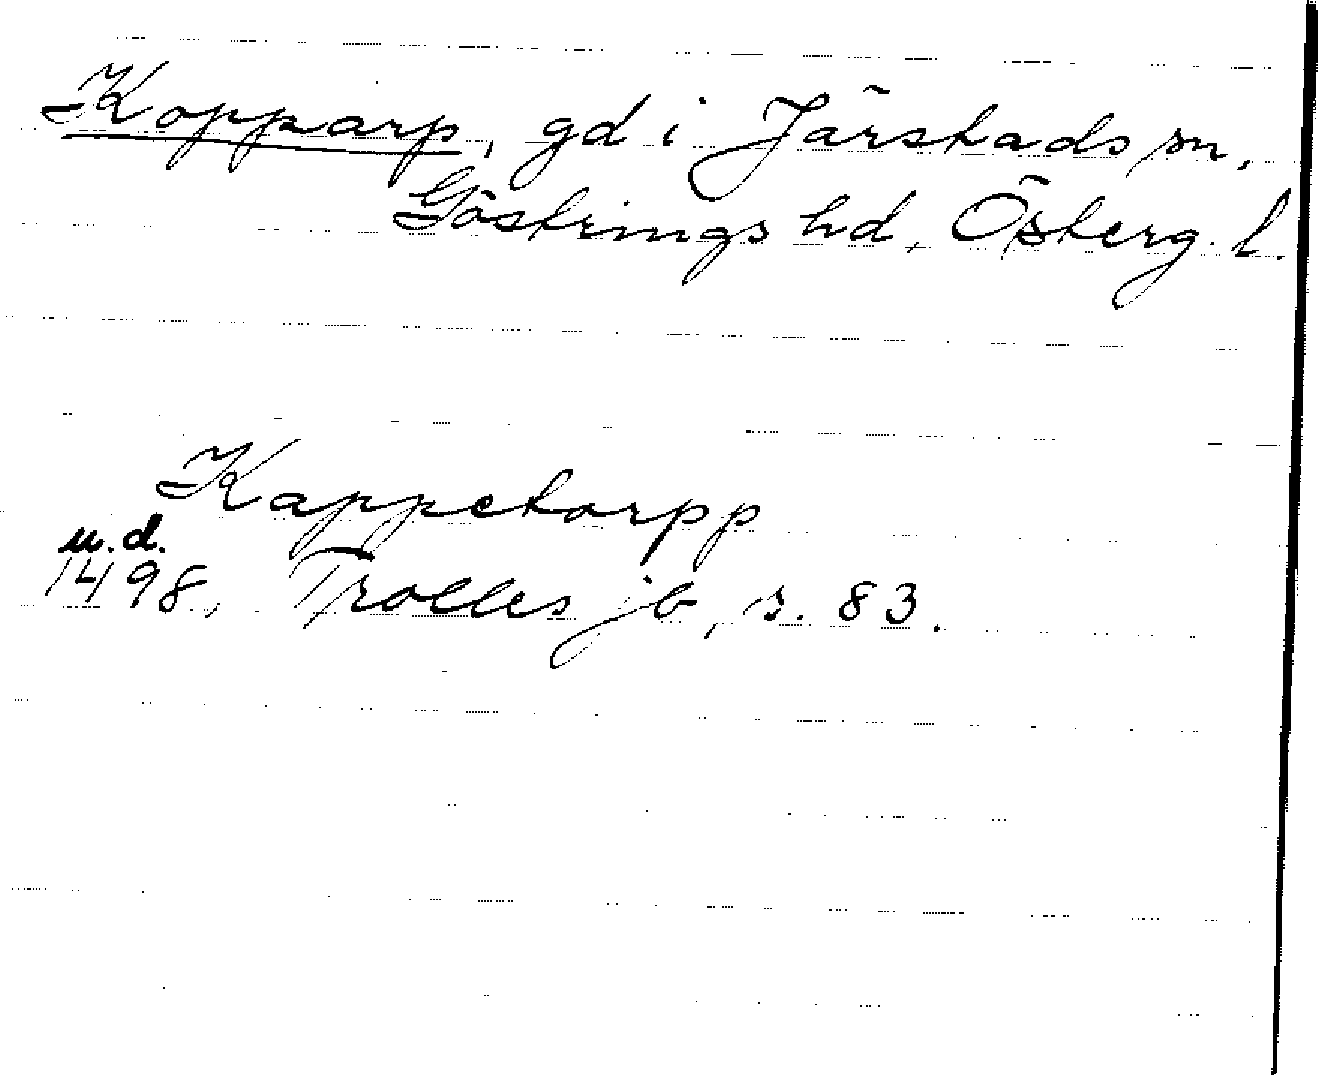 Kopparp, gd i Järstads sn,
Göstrings hd, Österg. l.
Kappetorpp
u.d.
1498, Trolles jb, s. 83.